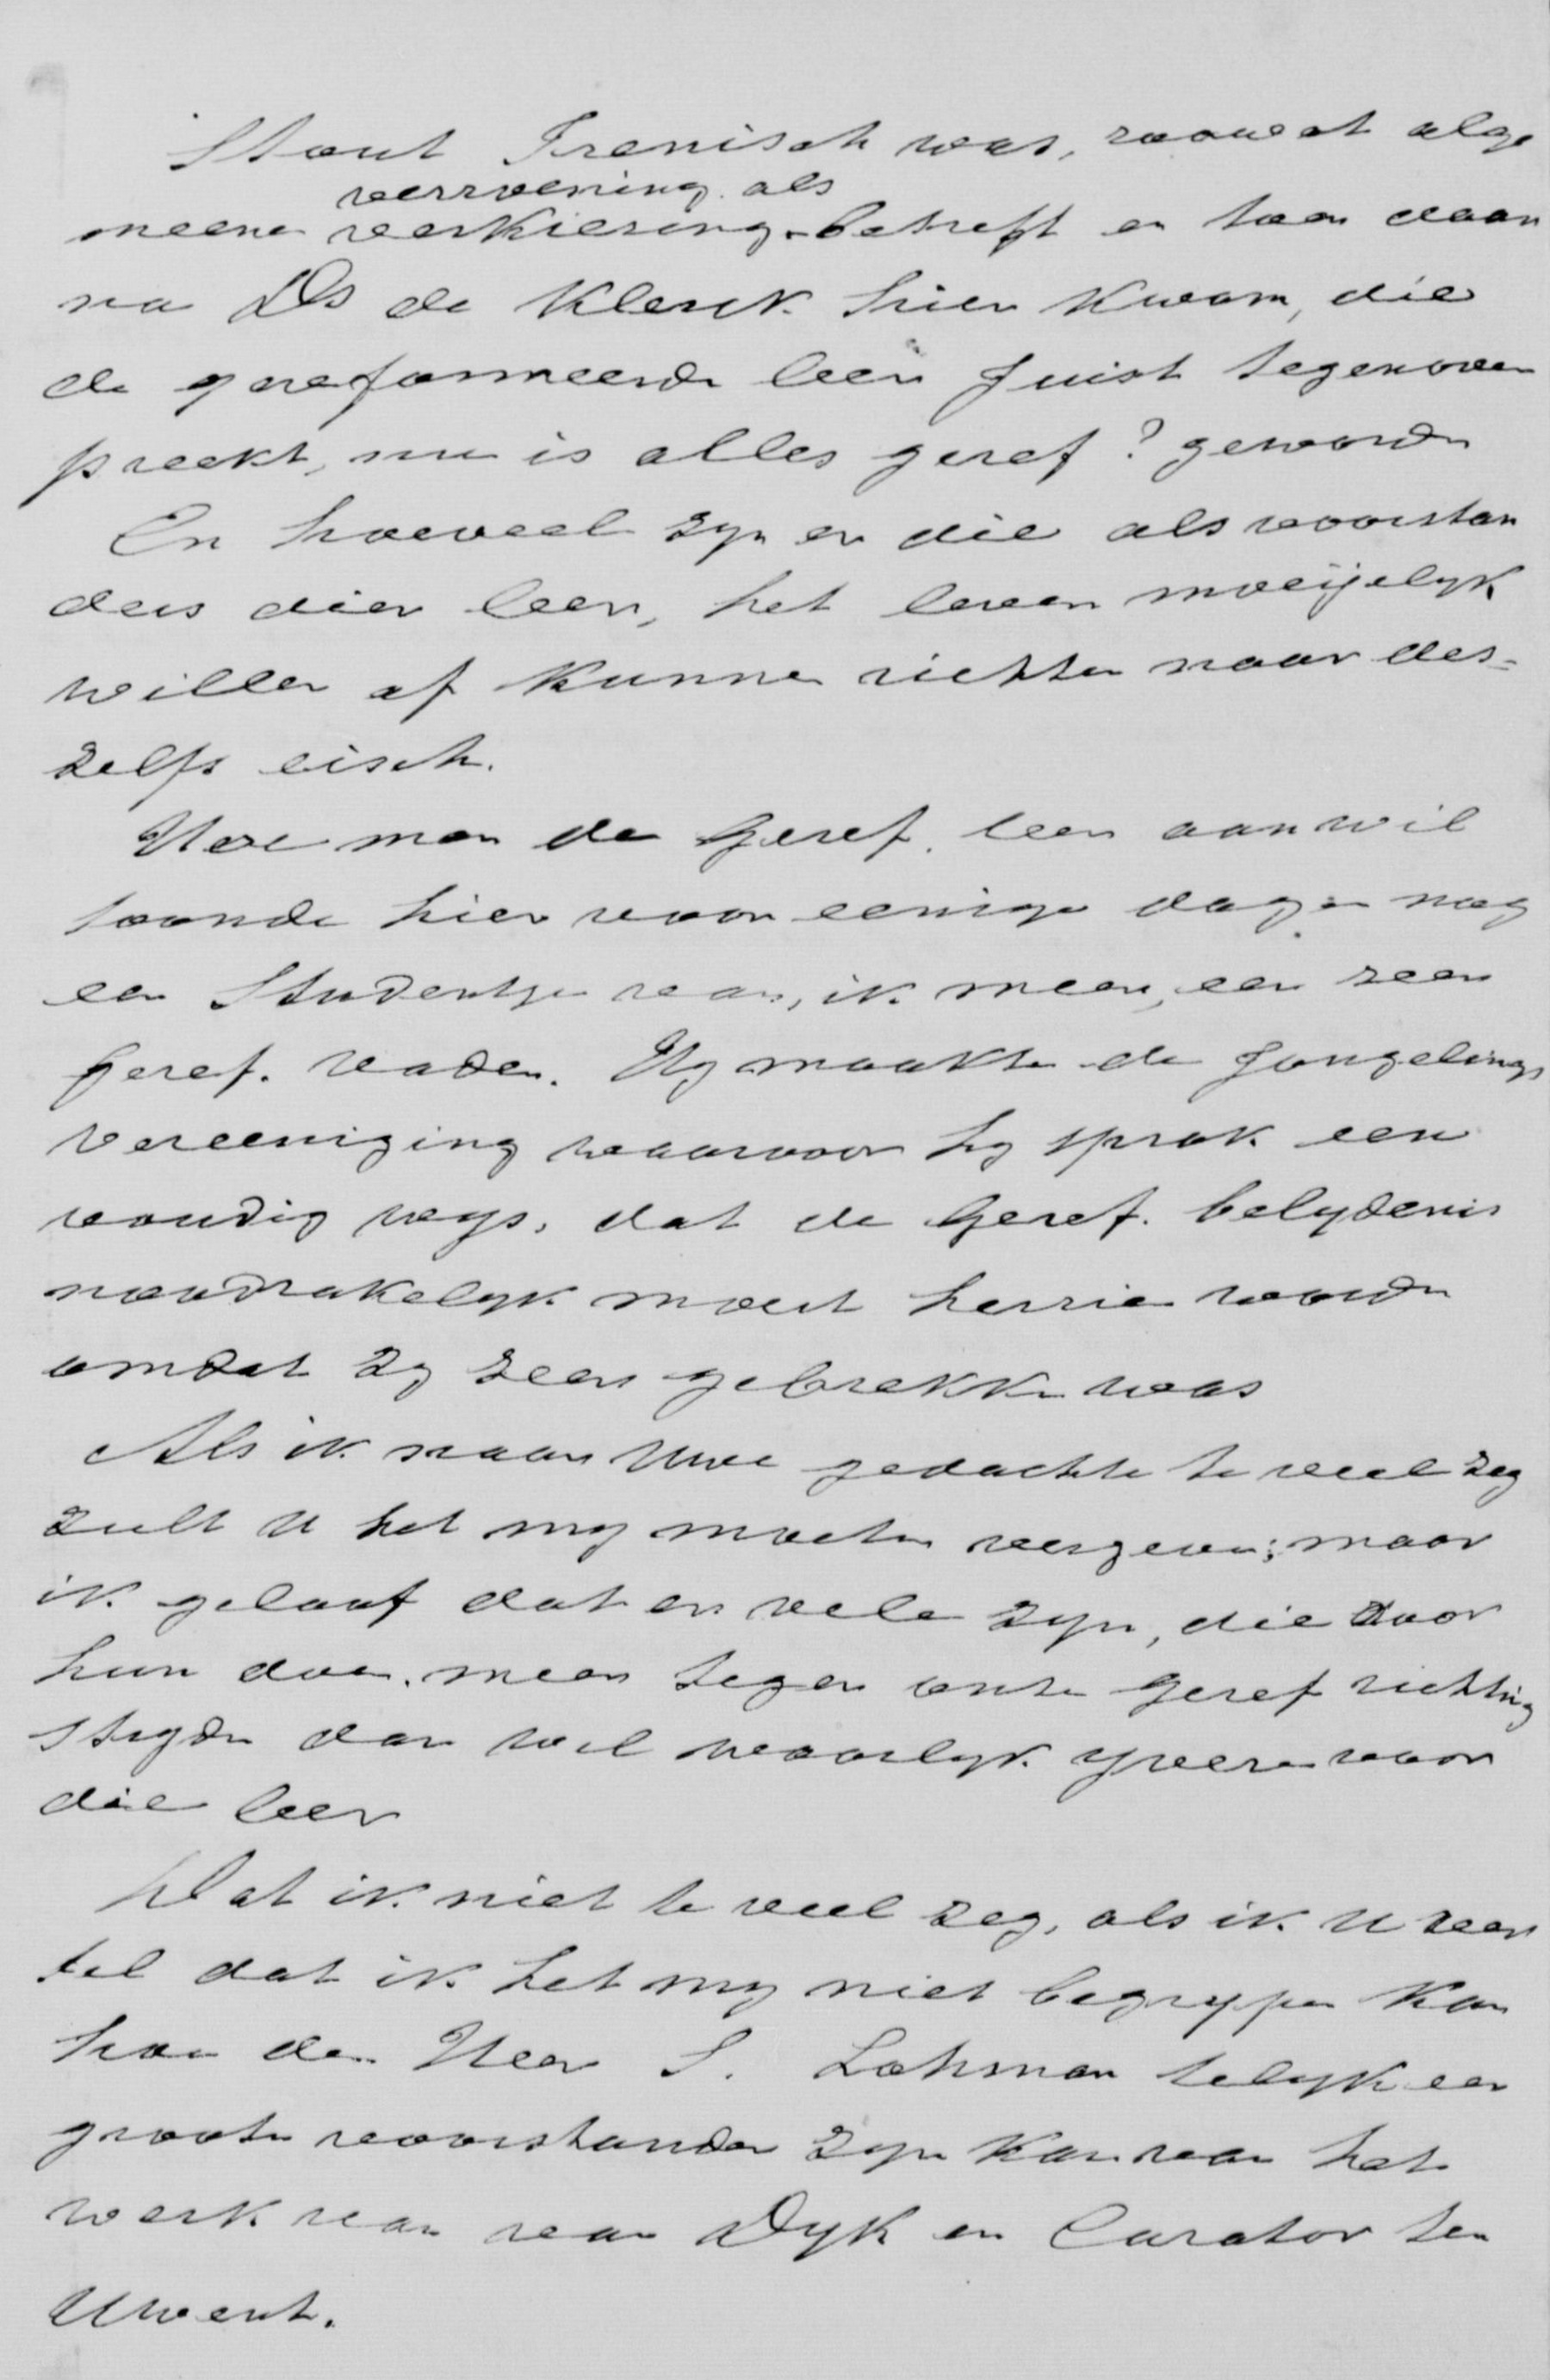 Stout Irenisch was, zoowat alge
verzoening als
meene verkiezing betreft en toen daar
na Ds de Klerck hier kwam, die
de gereformeerde leer juist tegenover
preekt, nu is alles geref? geworden
En hoeveel zyn er die als voorstan
ders dier leer, het leven moeijelyk
willen of kunnen richten naar des-
zelfs eisch.
Hoe men de Geref. leer aan wil
toonde hier voor eenige dagen nog
een Studentje van, ik meen, een zeer
Geref. vader. Hy maakte de Jongelings
vereeniging waarvoor hy sprak een
voudig wys, dat de Geref. belydenis
noodzakelyk moest herzien worden
omdat zy zeer gebrekkig was
Als ik naar Uwe gedachte te veel zeg
zult U het my moeten vergeven; maar
ik geloof dat er vele zyn, die door
hun doen meer tegen onze Geref richting
stryden dan wel waarlyk yveren voor
die leer
Dat ik niet te veel zeg, als ik U ver
tel dat ik het my niet begrypen kan
hoe de Heer S. Lohman telyk een
groote voorstander zyn kan van het
werk van van Dyk en Curator ten
Uwent.